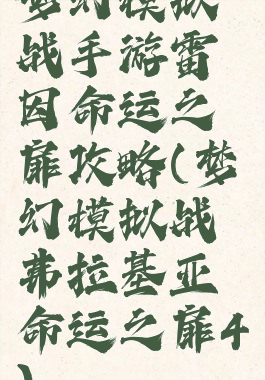 梦幻模拟
战手游雷
因命运之
扉攻略(梦
幻模拟战
弗拉基亚
命运之扉4
)